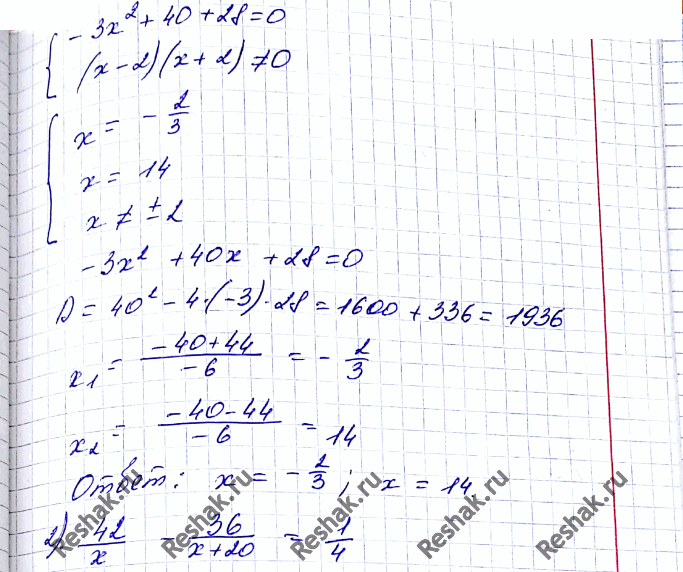 -3x² + 40 + 28 = 0
(x-2)(x+2) ≠ 0
x = -2/3
x = 14
x ≠ ±2
-3x² + 40x + 28 = 0
D = 40² - 4·(-3)·28 = 1600 + 336 = 1936
x₁ = (-40+44)/(-6) = -2/3
x₂ = (-40-44)/(-6) = 14
Ответ: x = -2/3; x = 14.
2) 42/x - 36/(x+20) = 1/4
Reshak.ru Reshak.ru Reshak.ru Reshak.ru Reshak.ru